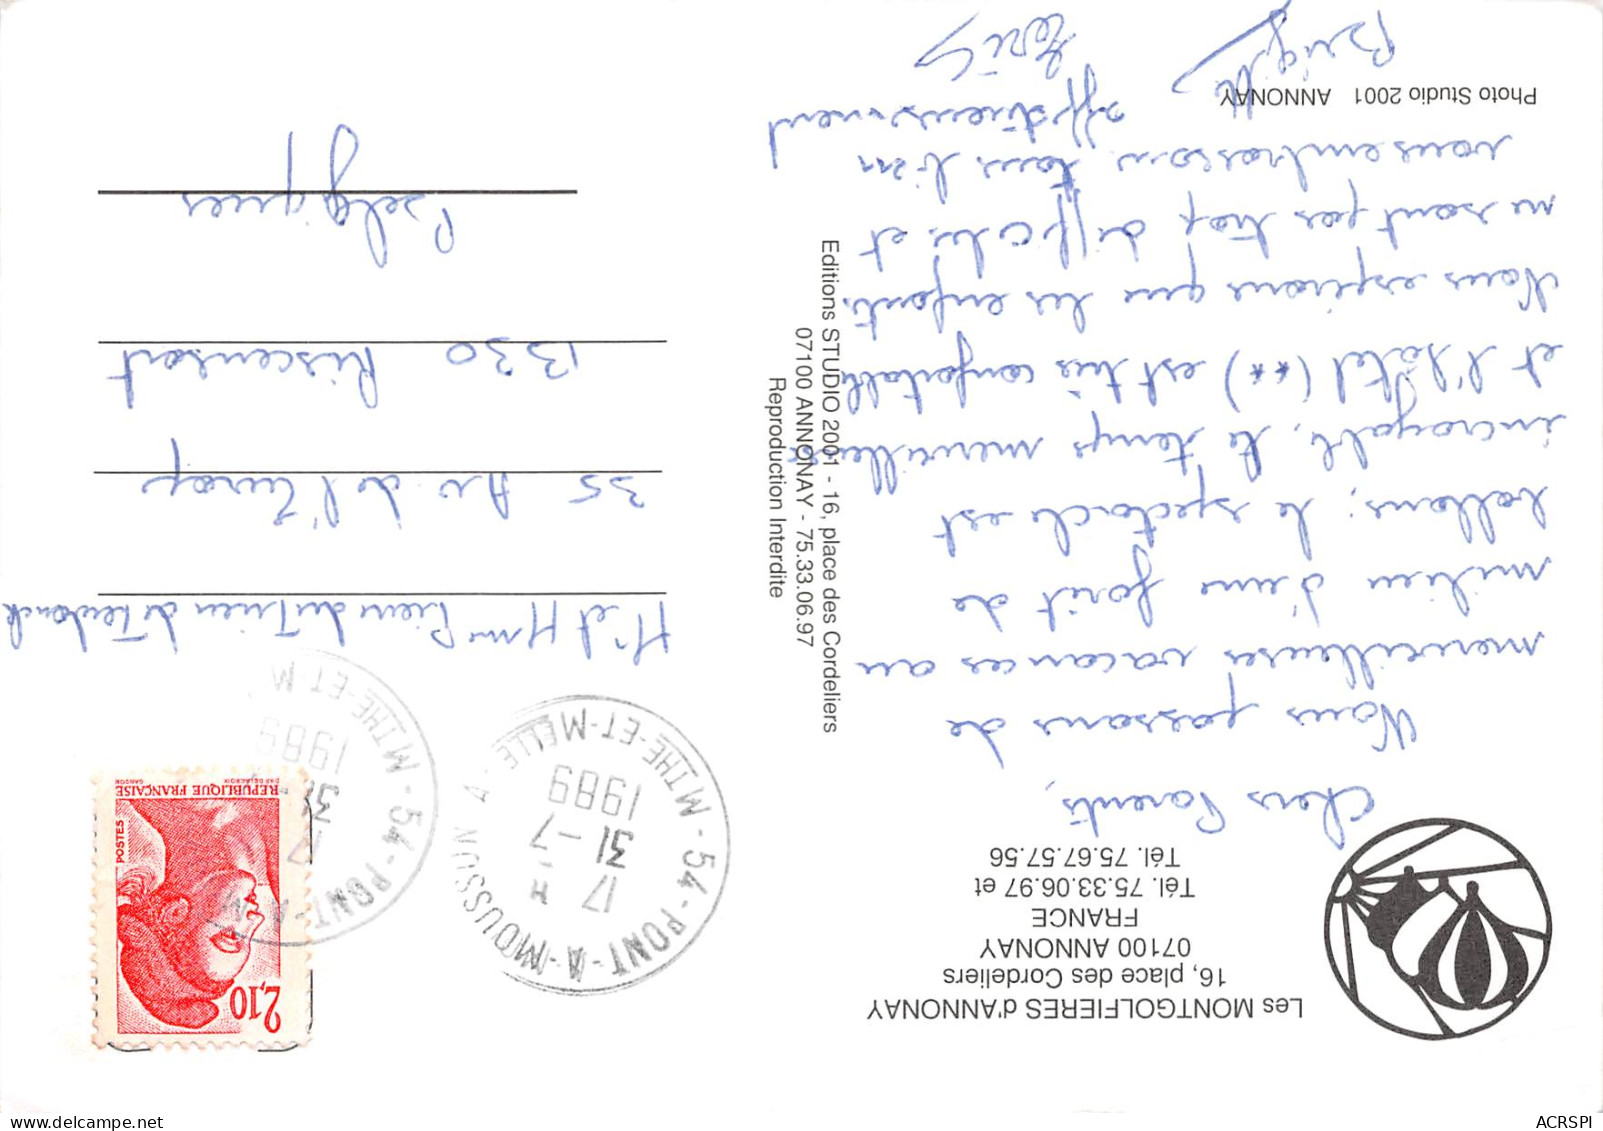 Les MONTGOLFIERES d'ANNONAY
16, place des Cordeliers
07100 ANNONAY
FRANCE
Tél. 75.33.06.97 et
Tél. 75.67.57.56
Chers Parents,
Nous passons de
merveilleuses vacances au
milieu d'une forêt de
ballons ; le spectacle est
incroyable, le temps merveilleux
et l'hôtel (**) est très confortable
Nous espérons que les enfants
ne sont pas trop difficiles et
vous embrassons tous bien
affectueusement
Brigitte
Photo Studio 2001 ANNONAY
Editions STUDIO 2001 - 16, place des Cordeliers
07100 ANNONAY - 75.33.06.97
Reproduction Interdite
2,10
POSTES
REPUBLIQUE FRANÇAISE
DAP DELACROIX GANDON
54 - PONT-A-MOUSSON
MTHE-ET-M
17
31
1989
54 - PONT-A-MOUSSON A
MTHE-ET-MELLE
17 H
31 - 7
1989
Mr et Mme Pierre du Trieu de Terdonck
35 Av de l'Europe
1330 Rixensart
Belgique
ACRSPI